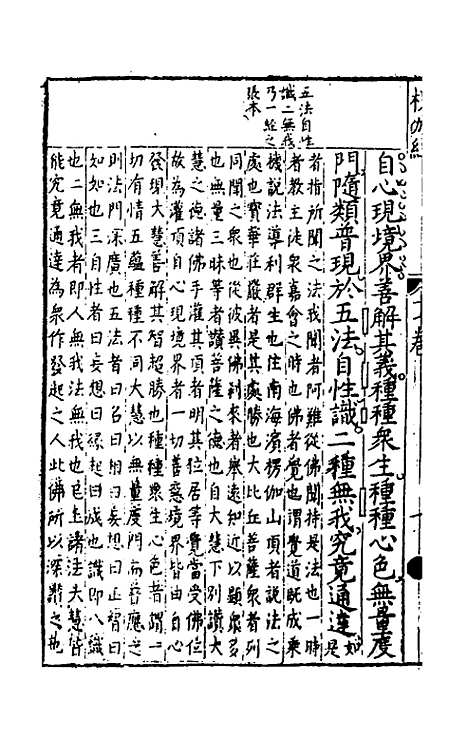 楞伽經
卷
自心現境界善解其義種種衆生種種心色無量度
門隨類普現於五法自性識二種無我究竟通達如是
者指所聞之法我聞者阿難從佛聞持是法也一時
者教主徒衆嘉會之時也佛者覺也謂覺道旣成乘
機說法導利群生也住南海濱楞伽山頂者說法之
處也寶華莊嚴者是其處勝也大比丘菩薩衆者列
同聞之衆也從彼異佛刹來者舉遠知近以顯衆多
也無量三昧等者讚菩薩之德也自大慧下別讚大
慧之德諸佛手灌其頂者明其位居等覺當受佛位
故爲灌頂自心現境界者一切善惡境界皆由自心
發現大慧善解其智超勝也種種衆生心色者謂一
切有情五蘊種種不同大慧以無量度門而普應之
則法門深廣也五法者曰名曰相曰妄想曰正智曰
如如也三自性者曰妄想曰緣起曰成也識即八識
也二無我者即人無我法無我也已上諸法大慧皆
能究竟通達爲衆作發起之人此佛所以深讚之也
五法自性
識二無我
乃一經之
張本